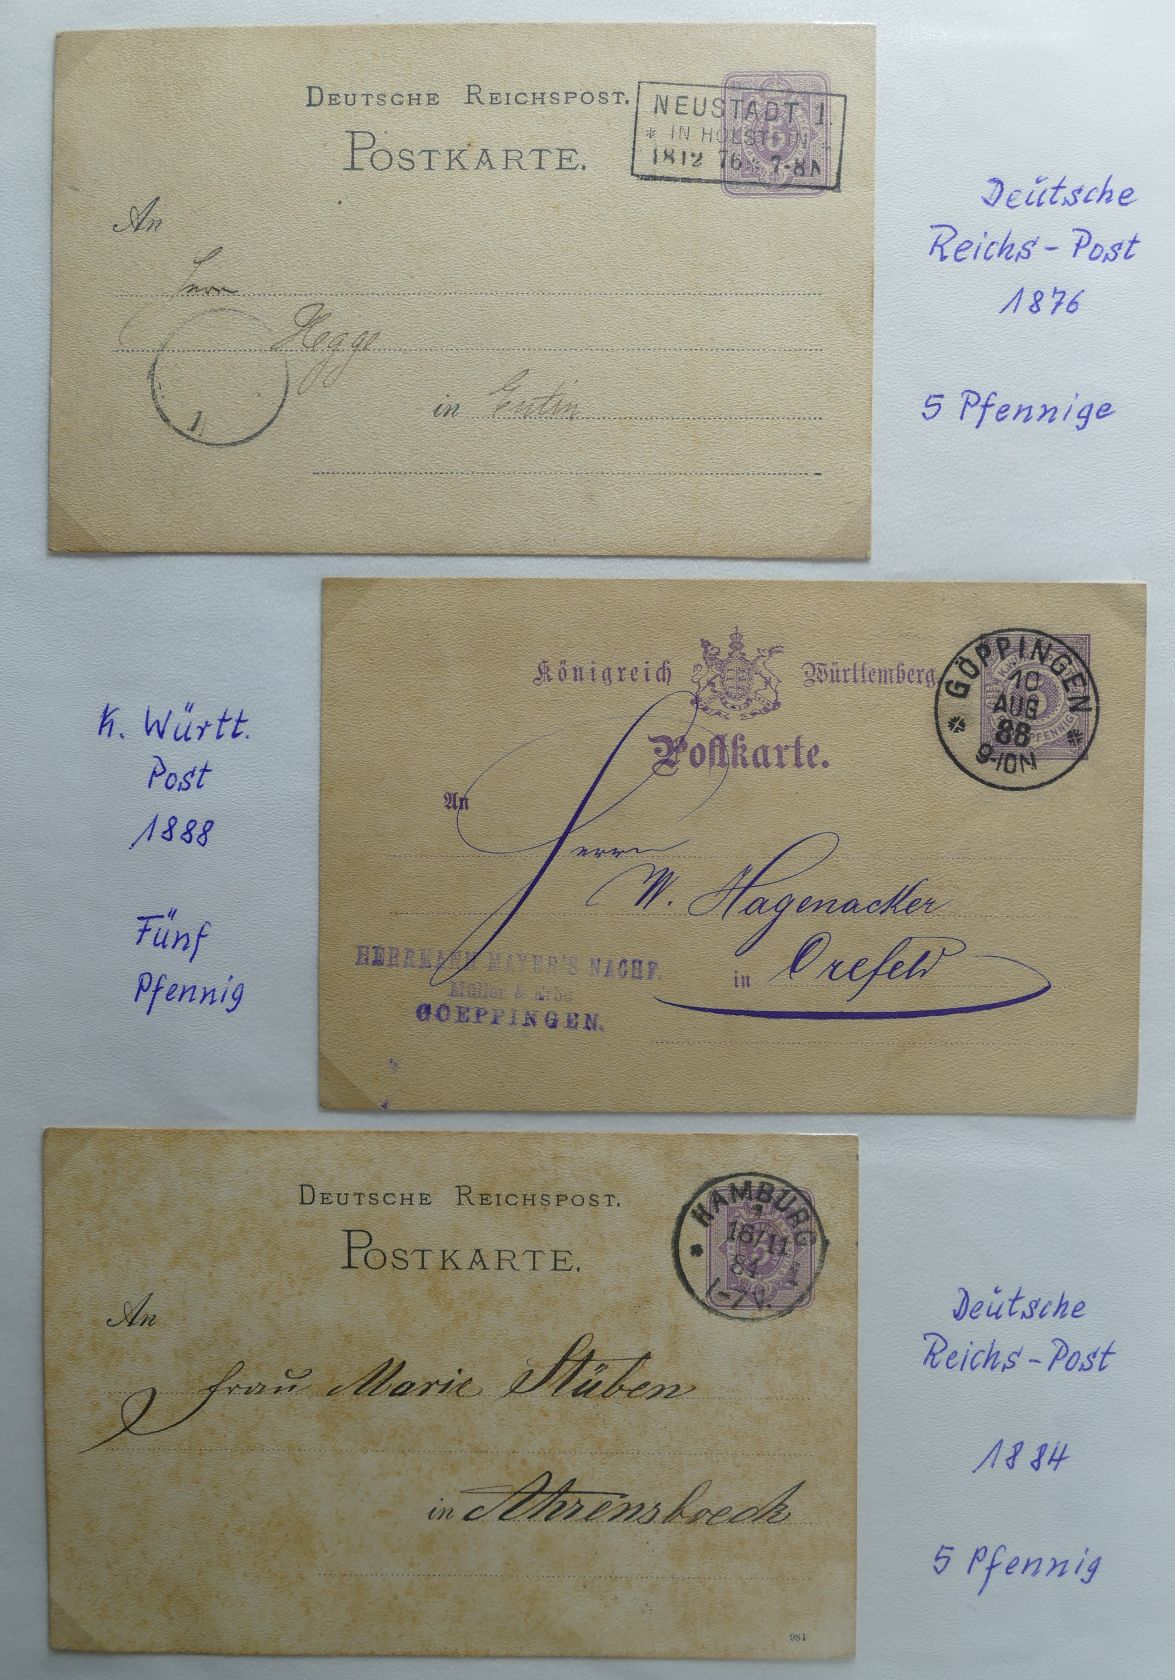 DEUTSCHE REICHSPOST.
POSTKARTE.
NEUSTADT 1.
* IN HOLSTEIN *
18 12 76 * 7-8 N
An
Herrn
Hegge
in Eutin
1
Deutsche
Reichs-Post
1876
5 Pfennige
Königreich Württemberg
Postkarte.
GÖPPINGEN
10
AUG
88
9-10N
PFENNIG
An
Herrn
W. Hagenacker
in Crefeld
HERRMANN MAYER'S NACHF.
Müller & Erbe
GOEPPINGEN.
K. Württ.
Post
1888
Fünf
Pfennig
DEUTSCHE REICHSPOST.
POSTKARTE.
HAMBURG
1
18/11
84
-7 V.
An
Frau Marie Stüben
in Ahrensboeck
984
Deutsche
Reichs-Post
1884
5 Pfennig